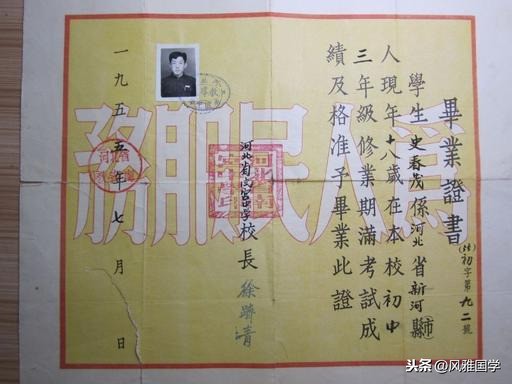 畢業證書
(55)初字第九二號
學生史春茂係河北省新河縣市
人現年十八歲在本校初中
三年級修業期滿考試成
績及格准予畢業此證
河北省南宮中學校長徐躋清
一九五五年七月 日
爲人民服務
头条 @风雅国学